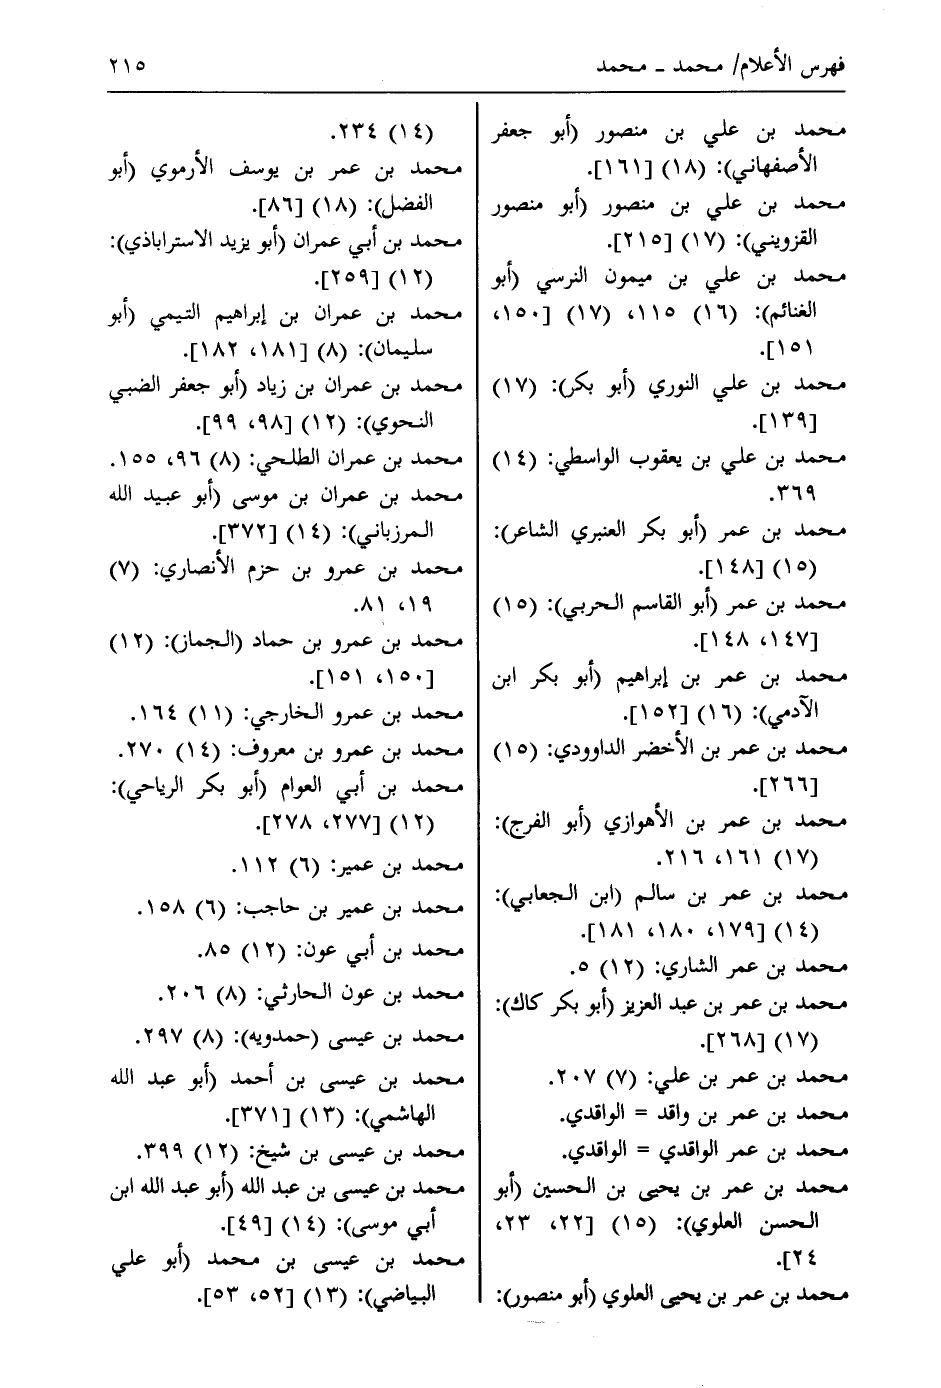 فهرس الأعلام/ محمد ـ محمد
٢١٥
محمد بن علي بن منصور (أبو جعفر
الأصفهاني): (١٨) [١٦١].
محمد بن علي بن منصور (أبو منصور
القزويني): (١٧) [٢١٥].
محمد بن علي بن ميمون النرسي (أبو
الغنائم): (١٦) ١١٥، (١٧) [١٥٠،
١٥١].
محمد بن علي النوري (أبو بكر): (١٧)
[١٣٩].
محمد بن علي بن يعقوب الواسطي: (١٤)
٣٦٩.
محمد بن عمر (أبو بكر العنبري الشاعر):
(١٥) [١٤٨].
محمد بن عمر (أبو القاسم الحربي): (١٥)
[١٤٧، ١٤٨].
محمد بن عمر بن إبراهيم (أبو بكر ابن
الآدمي): (١٦) [١٥٢].
محمد بن عمر بن الأخضر الداوودي: (١٥)
[٢٦٦].
محمد بن عمر بن الأهوازي (أبو الفرج):
(١٧) ١٦١، ٢١٦.
محمد بن عمر بن سالم (ابن الجعابي):
(١٤) [١٧٩، ١٨٠، ١٨١].
محمد بن عمر الشاري: (١٢) ٥.
محمد بن عمر بن عبد العزيز (أبو بكر كاك):
(١٧) [٢٦٨].
محمد بن عمر بن علي: (٧) ٢٠٧.
محمد بن عمر بن واقد = الواقدي.
محمد بن عمر الواقدي = الواقدي.
محمد بن عمر بن يحيى بن الحسين (أبو
الحسن العلوي): (١٥) [٢٢، ٢٣،
٢٤].
محمد بن عمر بن يحيى العلوي (أبو منصور):
(١٤) ٢٣٤.
محمد بن عمر بن يوسف الأرموي (أبو
الفضل): (١٨) [٨٦].
محمد بن أبي عمران (أبو يزيد الاستراباذي):
(١٢) [٢٥٩].
محمد بن عمران بن إبراهيم التيمي (أبو
سليمان): (٨) [١٨١، ١٨٢].
محمد بن عمران بن زياد (أبو جعفر الضبي
النحوي): (١٢) [٩٨، ٩٩].
محمد بن عمران الطلحي: (٨) ٩٦، ١٥٥.
محمد بن عمران بن موسى (أبو عبيد الله
المرزباني): (١٤) [٣٧٢].
محمد بن عمرو بن حزم الأنصاري: (٧)
١٩، ٨١.
محمد بن عمرو بن حماد (الجماز): (١٢)
[١٥٠، ١٥١].
محمد بن عمرو الخارجي: (١١) ١٦٤.
محمد بن عمرو بن معروف: (١٤) ٢٧٠.
محمد بن أبي العوام (أبو بكر الرياحي):
(١٢) [٢٧٧، ٢٧٨].
محمد بن عمير: (٦) ١١٢.
محمد بن عمير بن حاجب: (٦) ١٥٨.
محمد بن أبي عون: (١٢) ٨٥.
محمد بن عون الحارثي: (٨) ٢٠٦.
محمد بن عيسى (حمدويه): (٨) ٢٩٧.
محمد بن عيسى بن أحمد (أبو عبد الله
الهاشمي): (١٣) [٣٧١].
محمد بن عيسى بن شيخ: (١٢) ٣٩٩.
محمد بن عيسى بن عبد الله (أبو عبد الله ابن
أبي موسى): (١٤) [٤٩].
محمد بن عيسى بن محمد (أبو علي
البياضي): (١٣) [٥٢، ٥٣].